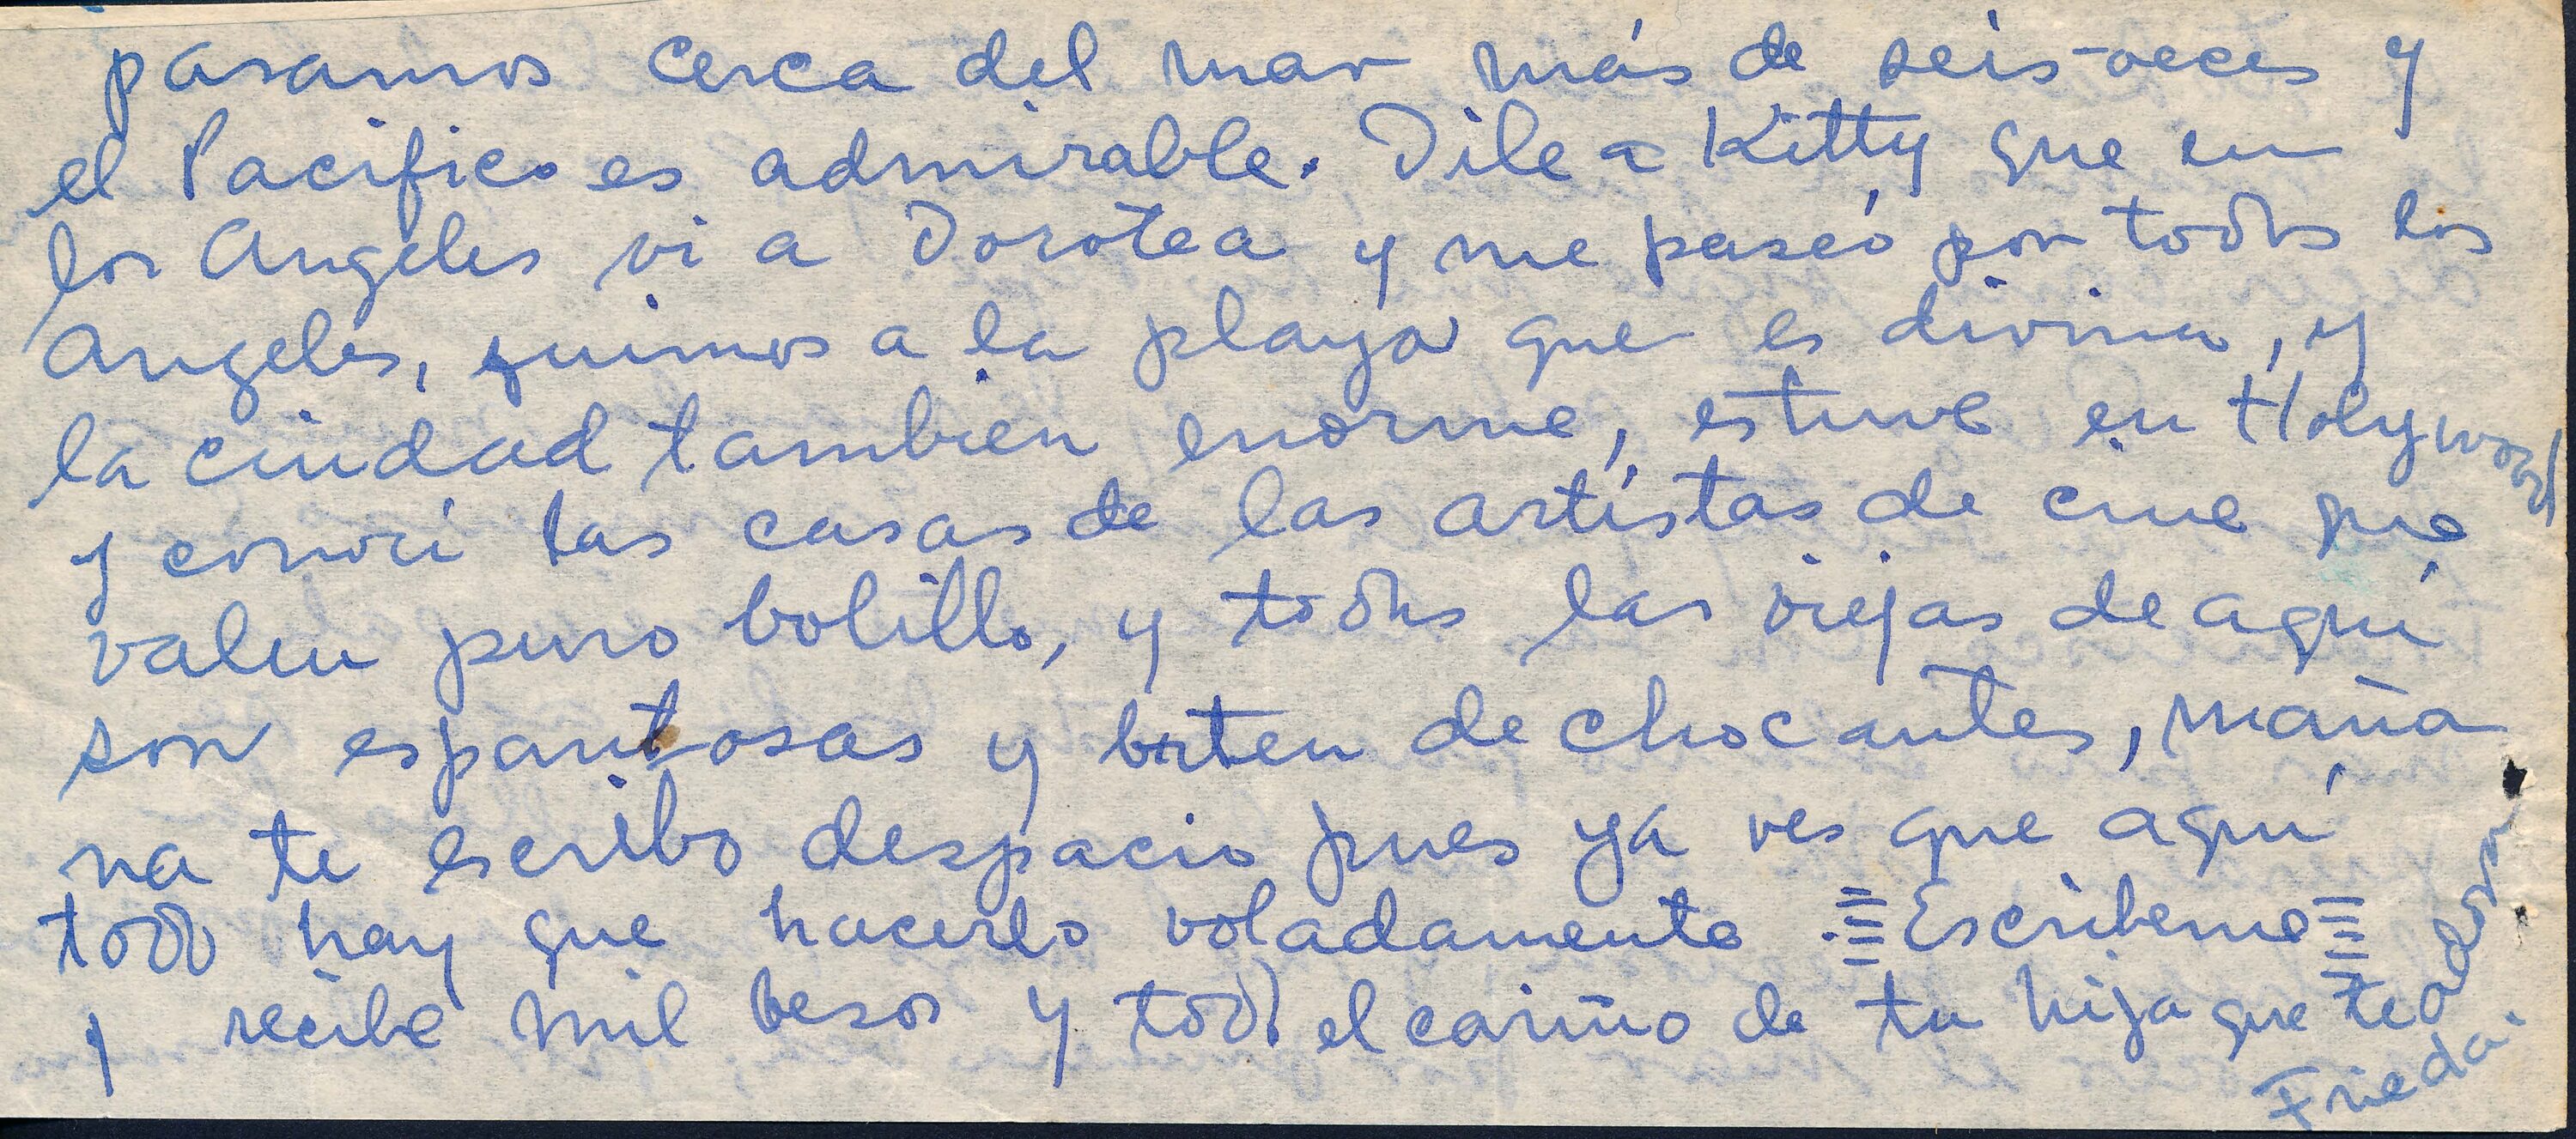 pasamos cerca del mar más de seis veces y
el Pacifico es admirable. Dile a Kitty que en
los Angeles vi a Dorotea y me paseó por todos los
Angeles, fuimos a la playa que es divina, y
la ciudad tambien enorme, estuve en Holywood
y conocí las casas de las artistas de cine que
valen puro bolillo, y todas las viejas de aquí
son espantosas y  de chocantes, maña
na te escribo despacio pues ya ves que aquí
todo hay que hacerlo voladamente. Escribeme
y recibe mil besos y todo el cariño de tu hija que te adora
Frieda.